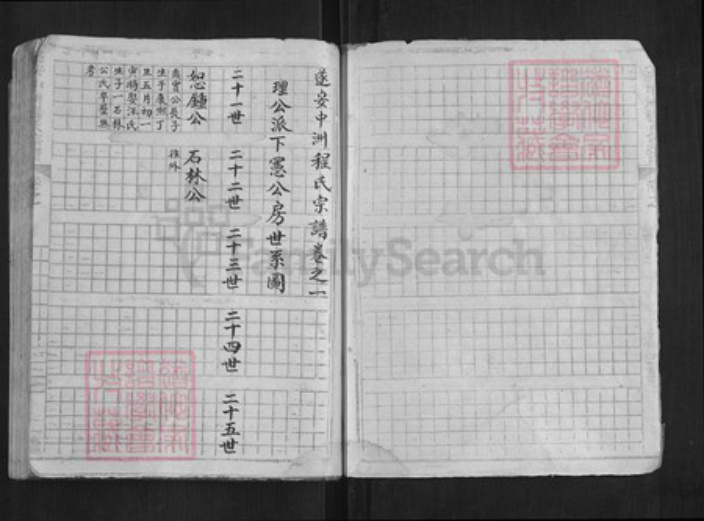 遂安中洲程氏宗譜卷之一
理公派下憲公房世系圖
二十一世
二十二世
二十三世
二十四世
二十五世
恕鍾公
石林公
徃外
貴公長子
生于康熙丁
丑五月初一
寅時娶汪氏
生子一石林
公氏卒塟無
考
FamilySearch